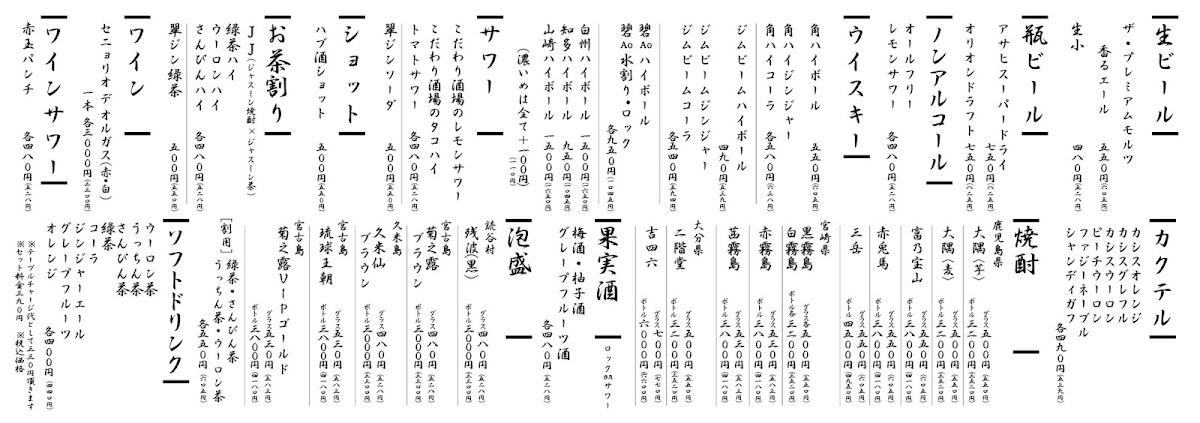 生ビール
ザ・プレミアムモルツ
香るエール 五五〇円(六〇五円)
生小 四八〇円(五二八円)
瓶ビール
アサヒスーパードライ 七五〇円(八二五円)
オリオンドラフト 七五〇円(八二五円)
ノンアルコール
オールフリー
レモンサワー 各四八〇円(五二八円)
ウイスキー
角ハイボール 五五〇円(六〇五円)
角ハイジンジャー
角ハイコーラ 各五八〇円(六三八円)
ジムビームハイボール 四九〇円(五三九円)
ジムビームジンジャー
ジムビームコーラ 各五四〇円(五九四円)
碧Aoハイボール
碧Ao水割り・ロック 各九五〇円(一〇四五円)
白州ハイボール 一五〇〇円(一六五〇円)
知多ハイボール 九五〇円(一〇四五円)
山崎ハイボール 一五〇〇円(一六五〇円)
(濃いめは全て+一〇〇円)(一一〇円)
サワー
こだわり酒場のレモンサワー
こだわり酒場のタコハイ
トマトサワー 各四八〇円(五二八円)
翠ジンソーダ 五〇〇円(五五〇円)
ショット
ハブ酒ショット 五〇〇円(五五〇円)
お茶割り
JJ(ジャスミン焼酎×ジャスミン茶)
緑茶ハイ
ウーロンハイ
さんぴんハイ 各四八〇円(五二八円)
翠ジン緑茶 五〇〇円(五五〇円)
ワイン
セニョリオ デ オルガス(赤・白)
一本 各三〇〇〇円(三三〇〇円)
ワインサワー
赤玉パンチ 各四八〇円(五二八円)
カクテル
カシスオレンジ
カシスグレフル
カシスウーロン
ピーチウーロン
ファジーネーブル
シャンディガフ 各四九〇円(五三九円)
焼酎
鹿児島県
大隅(芋) グラス五三〇円(五八三円)
ボトル三二〇〇円
大隅(麦) グラス五三〇円(五八三円)
ボトル三二〇〇円
富乃宝山
赤兎馬
三岳
宮崎県
黒霧島
白霧島 グラス各五〇〇円
赤霧島
茜霧島
大分県
二階堂
吉四六 グラス七〇〇円(七七〇円)
ボトル六〇〇〇円(六六〇〇円)
果実酒
ロックorサワー
梅酒・柚子酒
グレープフルーツ酒 各四八〇円(五二八円)
泡盛
読谷村
残波(黒) グラス四八〇円(五二八円)
ボトル三〇〇〇円(三三〇〇円)
宮古島
菊之露
ブラウン グラス四八〇円(五二八円)
ボトル三〇〇〇円(三三〇〇円)
久米島
久米仙
ブラウン グラス四八〇円(五二八円)
ボトル三〇〇〇円(三三〇〇円)
宮古島
琉球王朝 グラス五三〇円(五八三円)
ボトル三八〇〇円(四一八〇円)
宮古島
菊之露VIPゴールド グラス五三〇円(五八三円)
ボトル三八〇〇円(四一八〇円)
[割用] 緑茶・さんぴん茶
うっちん茶・ウーロン茶 各五五〇円(六〇五円)
ソフトドリンク
ウーロン茶
うっちん茶
さんぴん茶
緑茶
コーラ
ジンジャーエール
グレープフルーツ
オレンジ 各四〇〇円(四四〇円)
※テーブルチャージ代として三三〇円頂きます
※セット料金三九〇円 ※税込価格